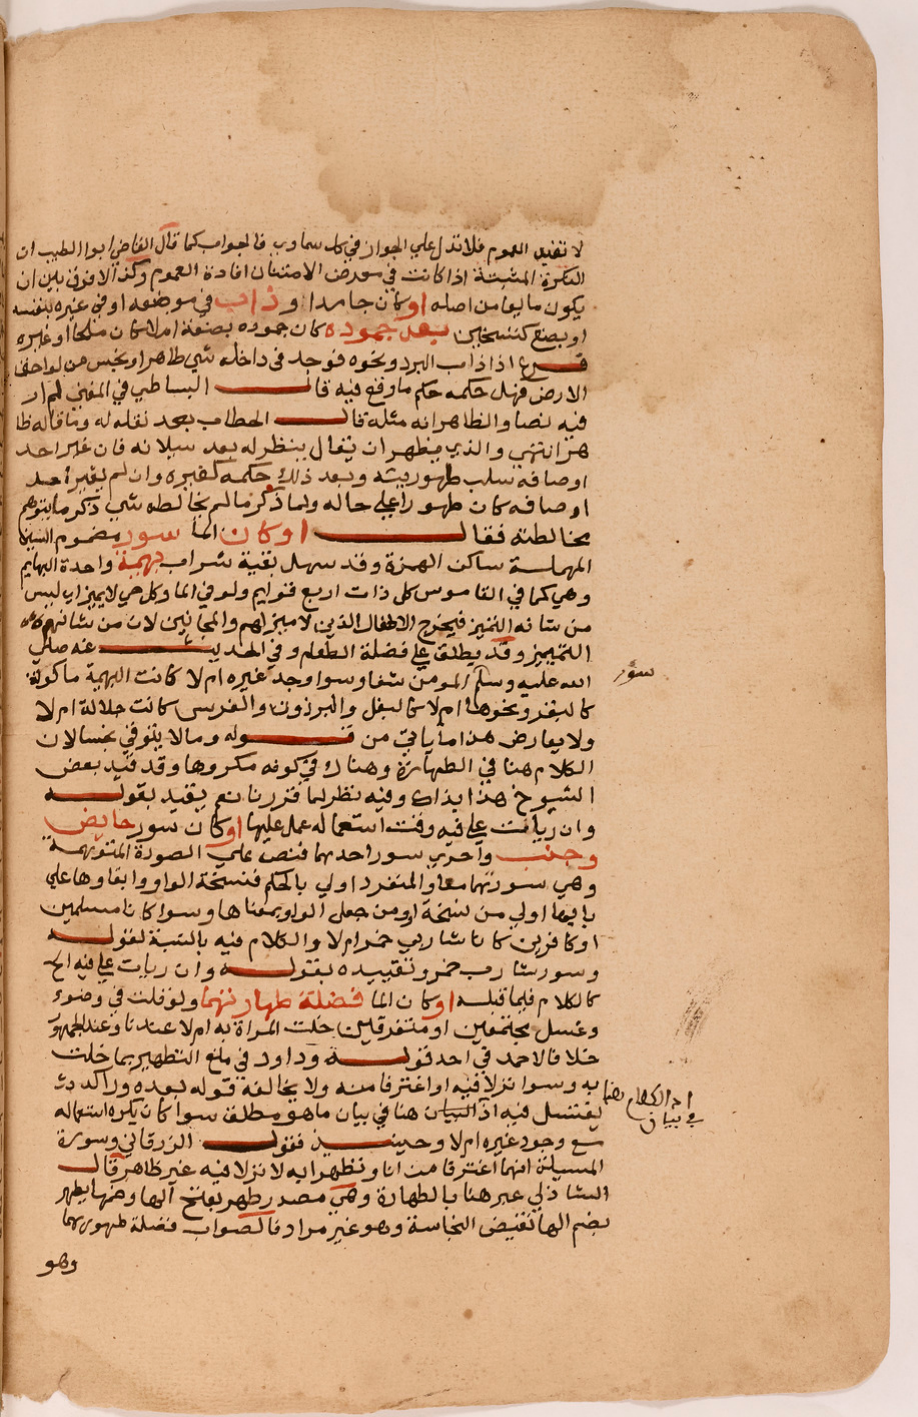 لا تفيد العموم فلا تدل علي الجواز في كل سماوي فالجواب كما قال القاضي ابوا الطيب ان
النكرة المثبتة اذا كانت في معرض الامتنان افادة العموم وكذ الا فوق بين ان
يكون مايعا من اصله او كان جامدا و ذاب في موضعه او في غيره بنفسه
او بصنع كتسخين بعد جموده كان جموده بصنعة ام لا كان ملحا او غيره
فرع اذا ذاب البرد ونحوه فوجد في داخله شي طاهر او نجس من لواحق
الارض فهل حكمه حكم ما وقع فيه قال البساطي في المغني لم ار
فيه نصا والظاهر انه مثله قال الحطاب بعد نقله له وما قاله ظا
هر انتهي والذي يظهر ان يقال ينظر له بعد سيلانه فان غير احد
اوصافه سلب طهوريته وبعد ذلك حكمه كغيره وان لم يغير احد
اوصافه كان طهورا علي حاله ولما ذكر ما لم يخالطه شي ذكر ما يتوهم
مخالطته فقال او كان الما سور مضموم السين
المهملة ساكن الهمزة وقد سهل بقية شراب بهيمة واحدة البهايم
وهي كما في القاموس كل ذات اربع قوايم ولو في الما وكل حي لا يميز اي ليس
من شانه التميز فيخرج الاطفال الذين لا ميز لهم والمجانين لان من شانهم
التمييز وقد يطلق علي فضلة الطعام وفي الحديث عنه صلي
الله عليه وسلم المومن شفا وسوا وجد غيره ام لا كانت البهيمة ماكولة
كالبقر ونحوها ام لا كالبغل والبرذون والفرس كانت جلالة ام لا
ولا يعارض هذا ما ياتي من قوله وما لا يتوقي نجسا لان
الكلام هنا في الطهارة وهناك في كونه مكروها وقد قيد بعض
الشيوخ هذا بذاك وفيه نظر لما قررنا نعم يقيد بقوله
وان رييت علي فيه وقت استعماله عمل عليها او كان سور حايض
وجنب واحري سور احدهما فنص علي الصورة المتوهمة
وهي سورتهما معا والمنفرد اولي بالحكم فنسخة الواو وابقاوها علي
بابها اولي من نسخة او ومن جعل الواو بمعناها وسوا كانا مسلمين
او كافرين كانا شاربي خمر ام لا والكلام فيه بالنسبة لقوله
وسور شارب خمر وتقييده بقوله وان رييت علي فيه الخ
كالكلام فيما قبله او كان الما فضلة طهارتهما ولو فلت في وضوء
وغسل مجتمعين او متفرقين خلت المراة به ام لا عندنا وعند الجمهور
خلافا لاحمد في احد قوله وداود في منع التطهير بما خلت
به وسوا نزلا فيه او اغترفا منه ولا يخالفه قوله بعده وراكد
يغتسل فيه اذ البيان هنا في بيان ما هو مطلق سوا كان يكره استعماله
مع وجود غيره ام لا وحينيذ فقول الزرقاني وصورة
المسيلة انهما اغترفا من انا وتطهرا به لا نزلا فيه غير ظاهر قال
الشاذلي عبر هنا بالطهارة وهي مصدر طهر بفتح الها وضمها يطهر
بضم الها نقيض النجاسة وهو غير مراد فالصواب فضلة طهورهما
وهو
سور
اذ الكلام هنا
في بيان